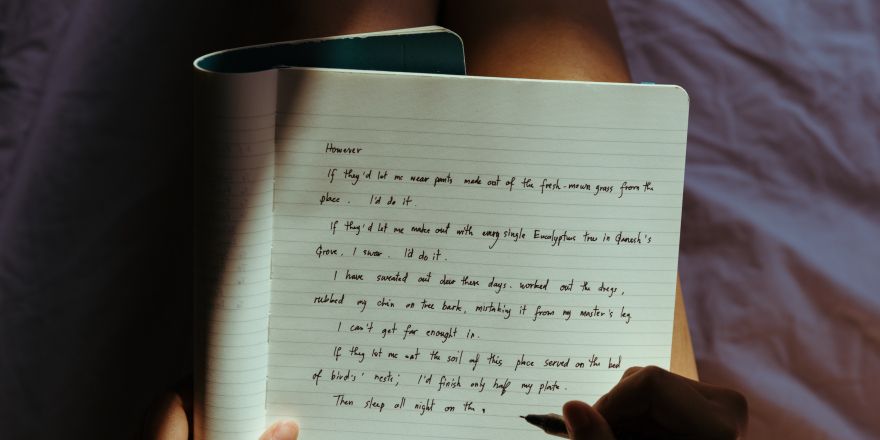 However
If they'd let me wear pants made out of the fresh-mown grass from the
place. I'd do it.
If they'd let me make out with every single Eucalyptus tree in Ganesh's
Grove, I swear. I'd do it.
I have sweated out dew these days. worked out the dregs,
rubbed my chin on tree bark, mistaking it from my master's leg
I can't get far enought in.
If they let me eat the soil of this place served on the bed
of bird's' nests; I'd finish only half my plate.
Then sleep all night on the